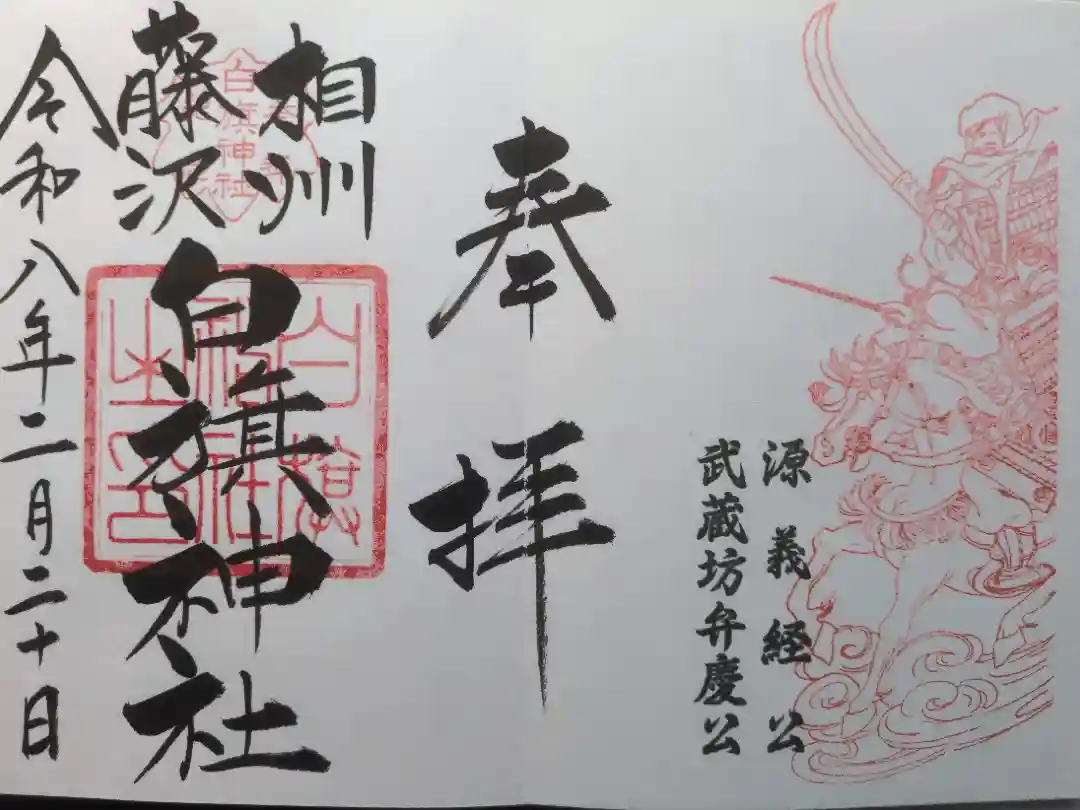 源義経公
武蔵坊弁慶公
奉拝
相州
藤沢
白旗神社
令和八年二月二十日
白旗神社
白旗神社之印